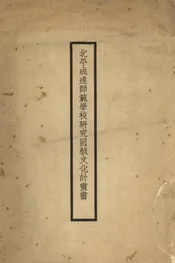 北平成達師範學校研究回教文化計畫書